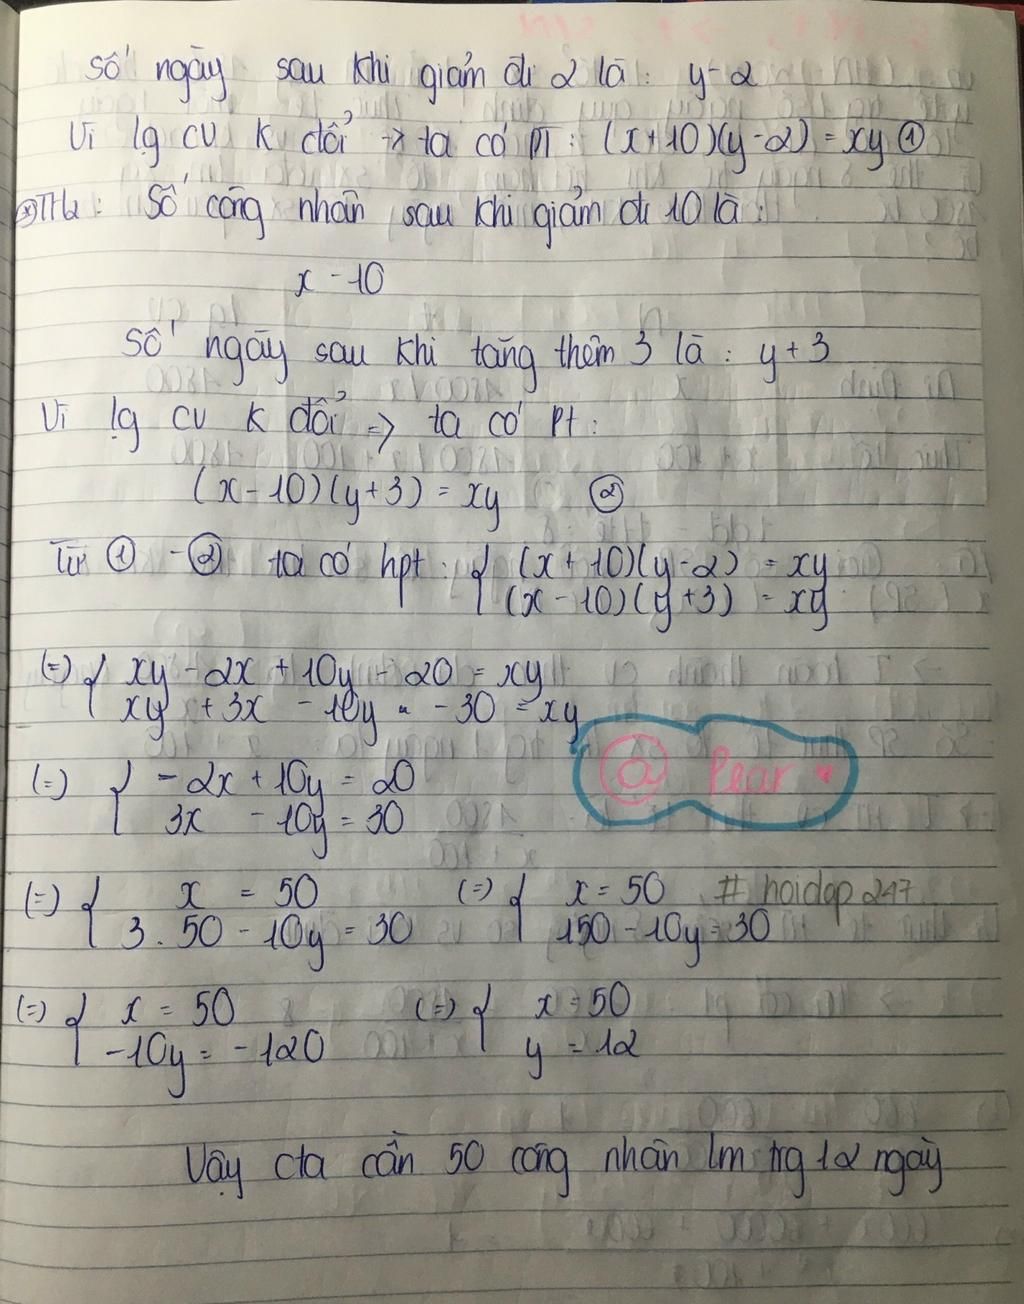 Số ngày sau khi giảm đi 2 là: y-2
Vì lg cv k đổi → ta có PT: (x+10)(y-2) = xy ①
Số công nhân sau khi giảm đi 10 là:
x - 10
Số ngày sau khi tăng thêm 3 là: y + 3
Vì lg cv k đổi => ta có Pt:
(x-10)(y+3) = xy ②
Từ ① - ② ta có hpt: { (x+10)(y-2) = xy
(x-10)(y+3) = xy
(=) { xy - 2x + 10y - 20 = xy
xy + 3x - 10y - 30 = xy
@ Pear
(=) { -2x + 10y = 20
3x - 10y = 30
(=) { x = 50 (=) { x = 50 # hoidap247
3. 50 - 10y = 30 150 - 10y = 30
(=) { x = 50 (=) { x = 50
-10y = -120 y = 12
Vậy cta cần 50 công nhân lm trg 12 ngày